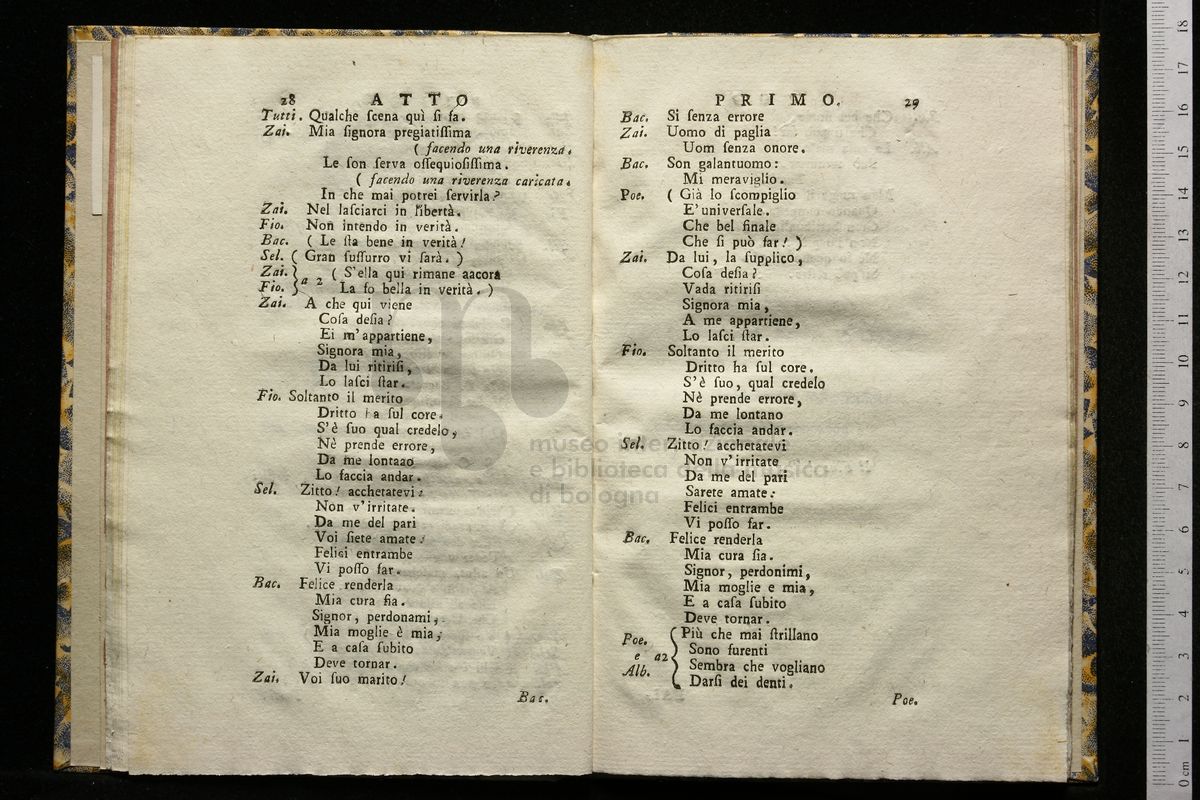 28 ATTO
Tutti. Qualche ſcena quì ſi fa.
Zai. Mia ſignora pregiatiſſima
( facendo una riverenza.
Le ſon ſerva oſſequioſiſſima.
( facendo una riverenza caricata.
In che mai potrei ſervirla?
Zai. Nel laſciarci in libertà.
Fio. Non intendo in verità.
Bac. ( Le ſta bene in verità!
Sel. ( Gran ſuſſurro vi ſarà. )
Zai. } a 2 ( S'ella qui rimane aacora
Fio. } La fo bella in verità. )
Zai. A che qui viene
Coſa deſia?
Ei m'appartiene,
Signora mia,
Da lui ritiriſi,
Lo laſci ſtar.
Fio. Soltanto il merito
Dritto ha ſul core.
S'è ſuo qual credelo,
Nè prende errore,
Da me lontaao
Lo faccia andar.
Sel. Zitto! acchetatevi:
Non v'irritate.
Da me del pari
Voi ſiete amate:
Felici entrambe
Vi poſſo far.
Bac. Felice renderla
Mia cura fia.
Signor, perdonami,
Mia moglie è mia,
E a caſa ſubito
Deve tornar.
Zai. Voi ſuo marito!
Bac.
PRIMO. 29
Bac. Si ſenza errore
Zai. Uomo di paglia
Uom ſenza onore.
Bac. Son galantuomo:
Mi meraviglio.
Poe. ( Già lo ſcompiglio
E' univerſale.
Che bel finale
Che ſi può far! )
Zai. Da lui, la ſupplico,
Coſa deſia?
Vada ritiriſi
Signora mia,
A me appartiene,
Lo laſci ſtar.
Fio. Soltanto il merito
Dritto ha ſul core.
S'è ſuo, qual credelo
Nè prende errore,
Da me lontano
Lo faccia andar.
Sel. Zitto! acchetatevi
Non v'irritate
Da me del pari
Sarete amate:
Felici entrambe
Vi poſſo far.
Bac. Felice renderla
Mia cura ſia.
Signor, perdonimi,
Mia moglie e mia,
E a caſa ſubito
Deve tornar.
Poe. { Più che mai ſtrillano
e a2 Sono furenti
Alb. Sembra che vogliano
Darſi dei denti.
Poe.
museo
e biblioteca
di bologna
0 cm 1 2 3 4 5 6 7 8 9 10 11 12 13 14 15 16 17 18